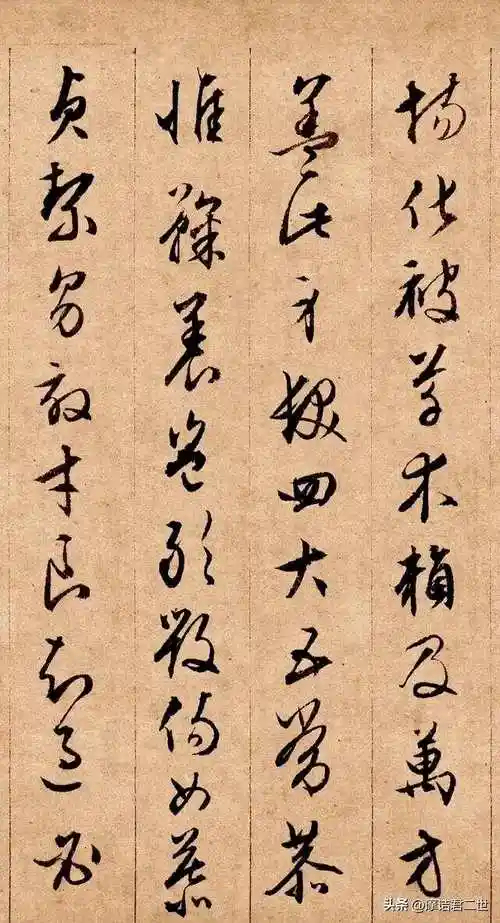 場化被草木賴及萬方
蓋此身髮四大五常恭
惟鞠養豈敢毀傷女慕
貞絜男效才良知過必
头条 @摩诘君二世